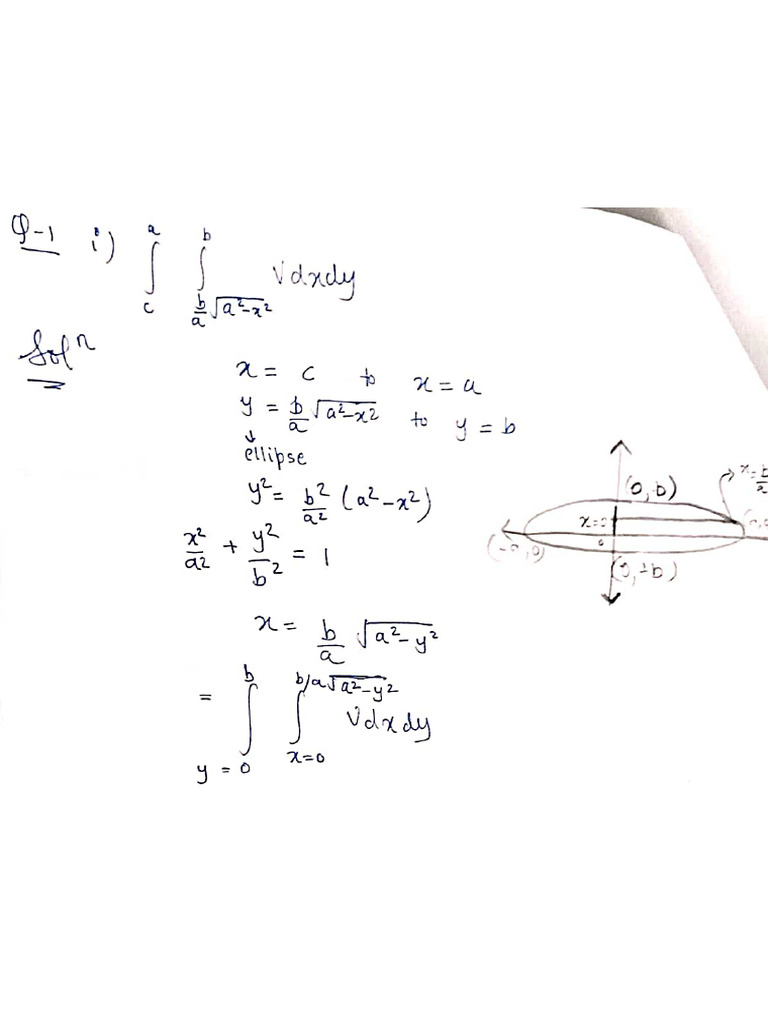 Q-1 i) ∫_c^a ∫_{b/a √(a²-x²)}^b V dx dy
Solⁿ
x = c to x = a
y = b/a √(a²-x²) to y = b
↓
ellipse
y² = b²/a² (a² - x²)
x²/a² + y²/b² = 1
x = b/a √(a² - y²)
= ∫_{y=0}^b ∫_{x=0}^{b/a √(a²-y²)} V dx dy
(0, b)
(-a, 0)